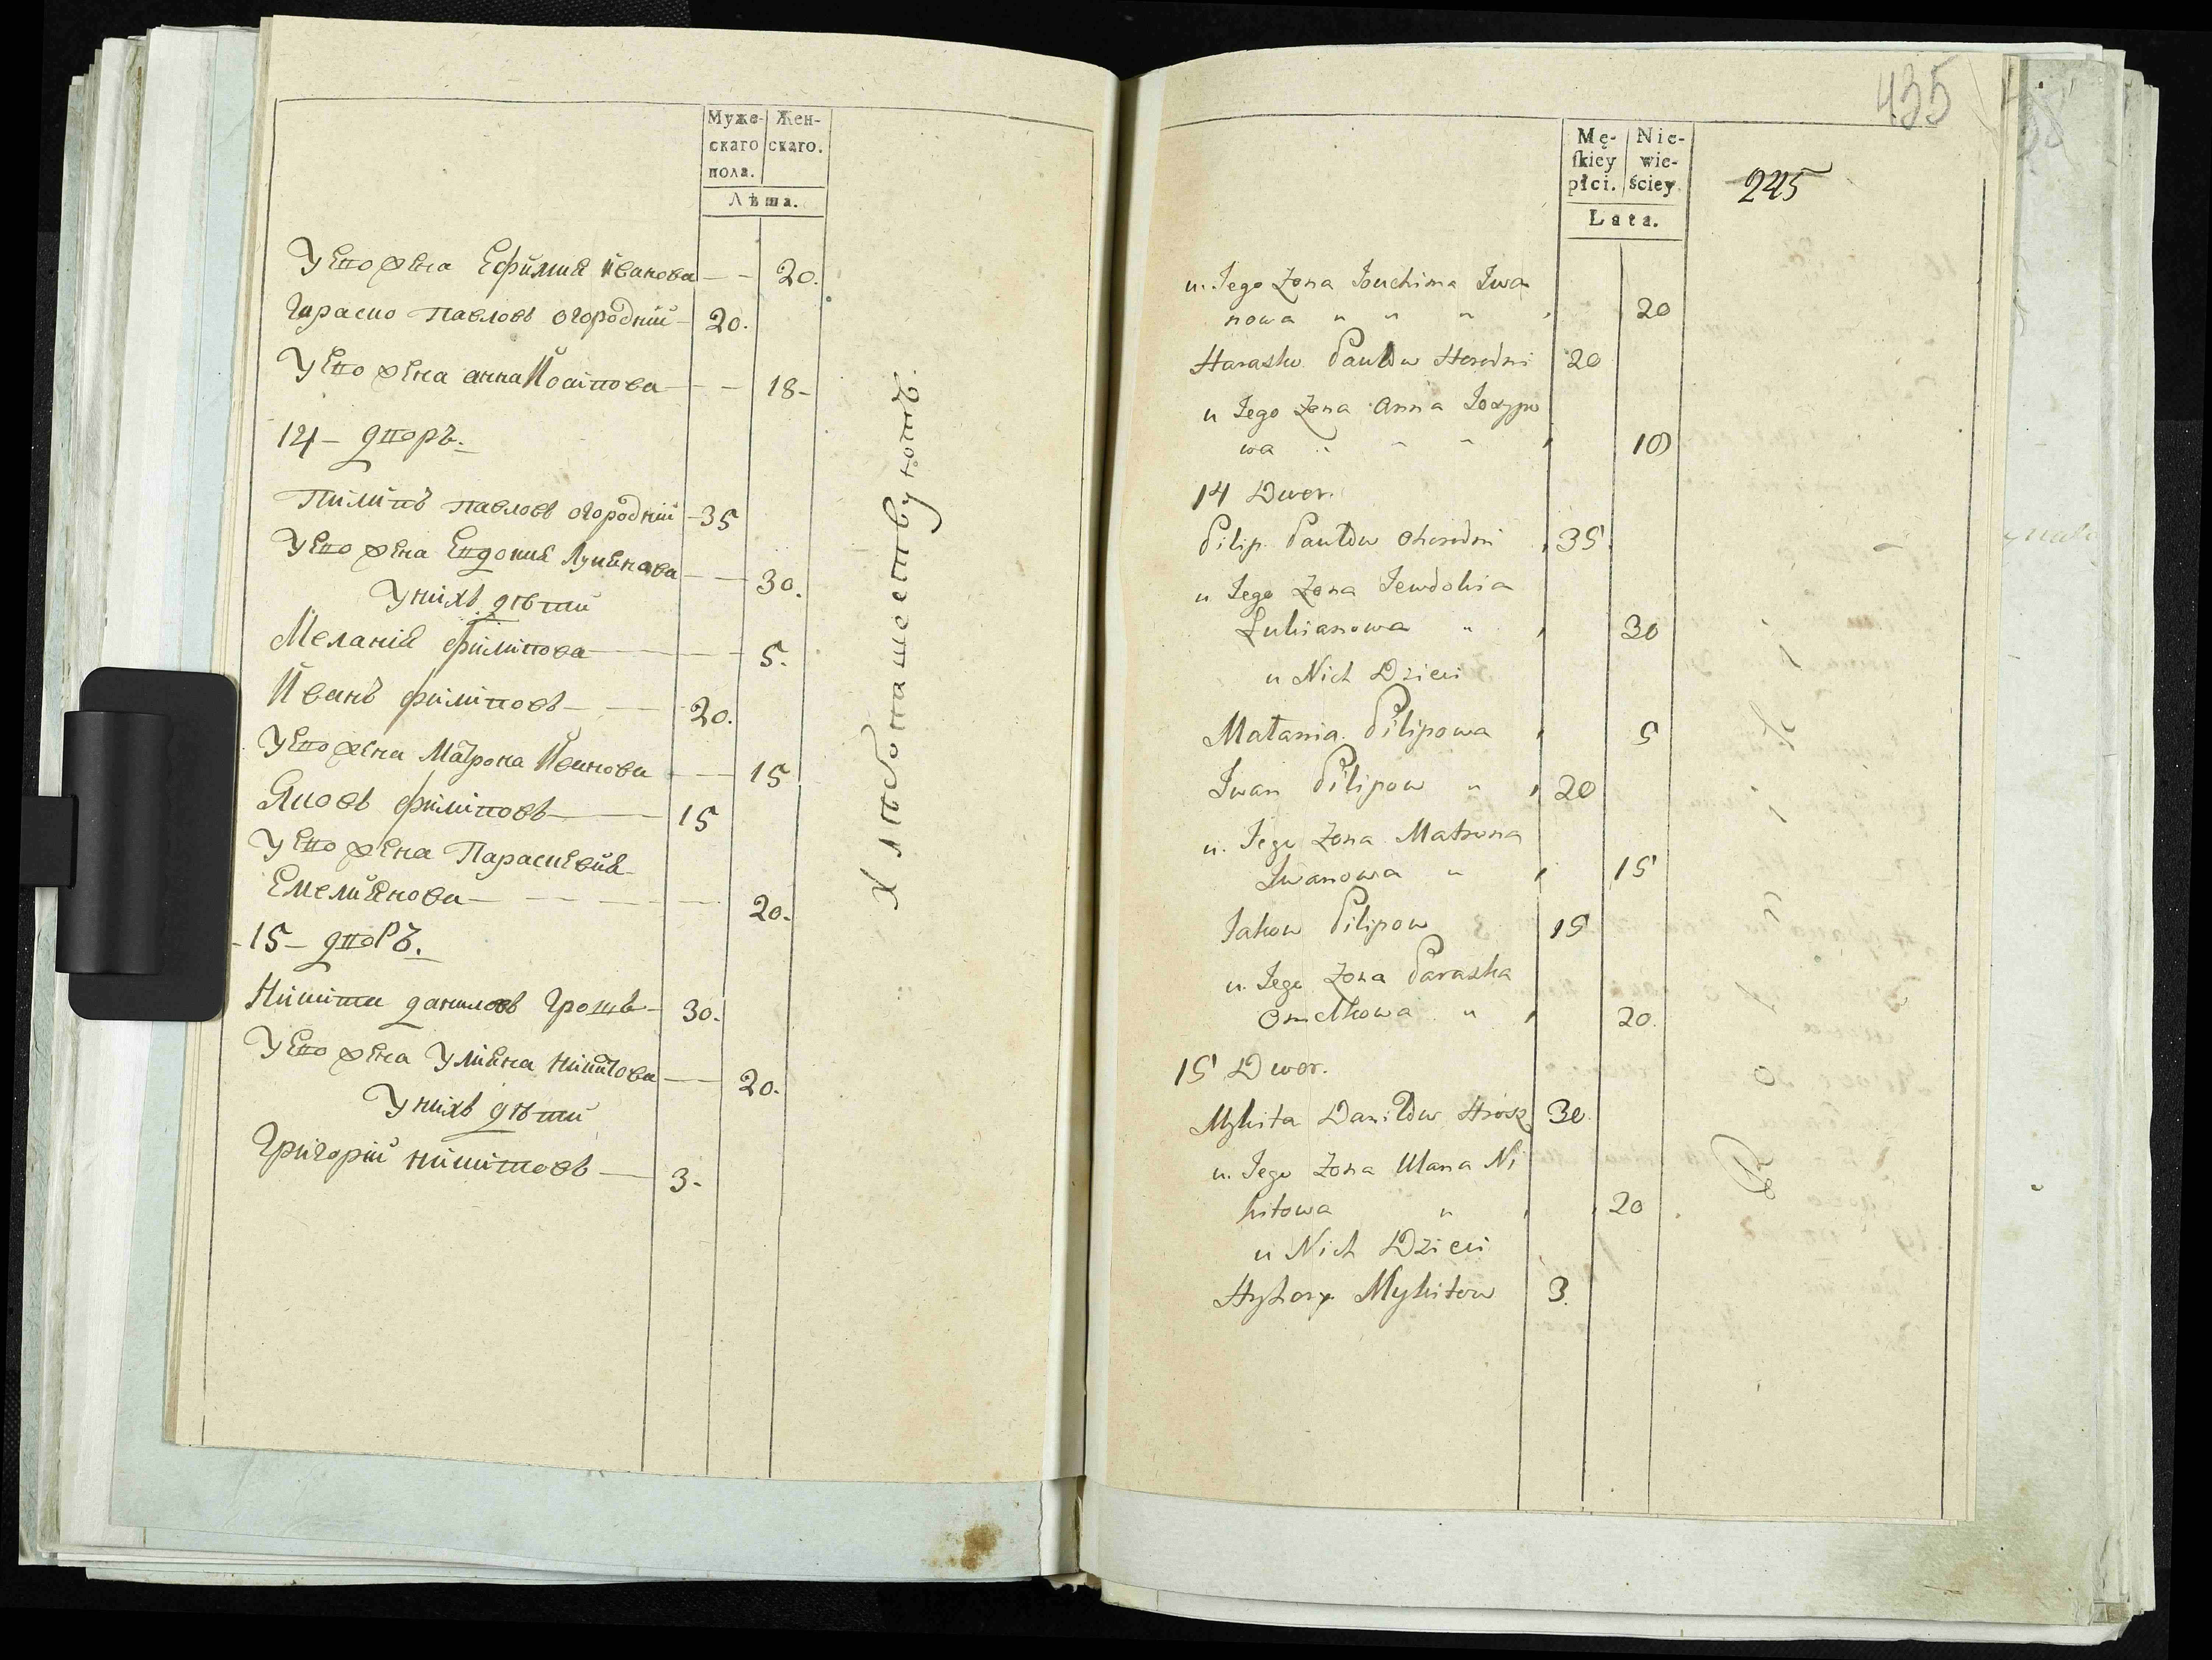 Муже- Жен-
скаго скаго.
пола.
Лѣта.
У Его жена Ефимия Иванова — — 20.
Гараско Павловъ огородний — 20.
У Его жена анна Иосипова — — 18 -
14 - дворъ.
Пилипъ Павловъ огородний - 35
У Его жена Евдокия Лукянова — — 30.
У нихъ дѣти
Мелания Филипова — — 5.
Иванъ Филиповъ — — 20.
У Его жена Матрона Иванова — — 15
Яковъ Филиповъ — 15
У Его жена Параскевия
Емелиянова — — — — 20.
- 15 - дворЪ.
Никита даниловъ Грошъ — 30.
У Его жена Улияна Никитова — 20.
У нихъ дѣти
Григорий Никитовъ — 3.
Хлѣбопашествуютъ.
435
Mę- Nie-
skiey wie-
płci. ściey
Lata.
245
u. Jego Zona Jouchima Iwa
nowa " " " 20
Harasko Pawłow Horodni 20
u Jego Zona Anna Jozypo
wa " " " 18
14 Dwor.
Pilip Pawłow Ohorodni 35.
u Jego Zona Jewdokia
Lukianowa " 30
u Nich Dzieci
Małania Pilipowa 5
Iwan Pilipow " 20
u. Jego Zona Matrona
Iwanowa " 15
Jakow Pilipow 15
u. Jego Zona Paraska
Omelkowa " 20.
15 Dwor.
Mykita Daniłow Hrosz 30.
u. Jego Zona Ulana Ni
kitowa " 20
u Nich Dzieci
Hryhory Mykitow 3.